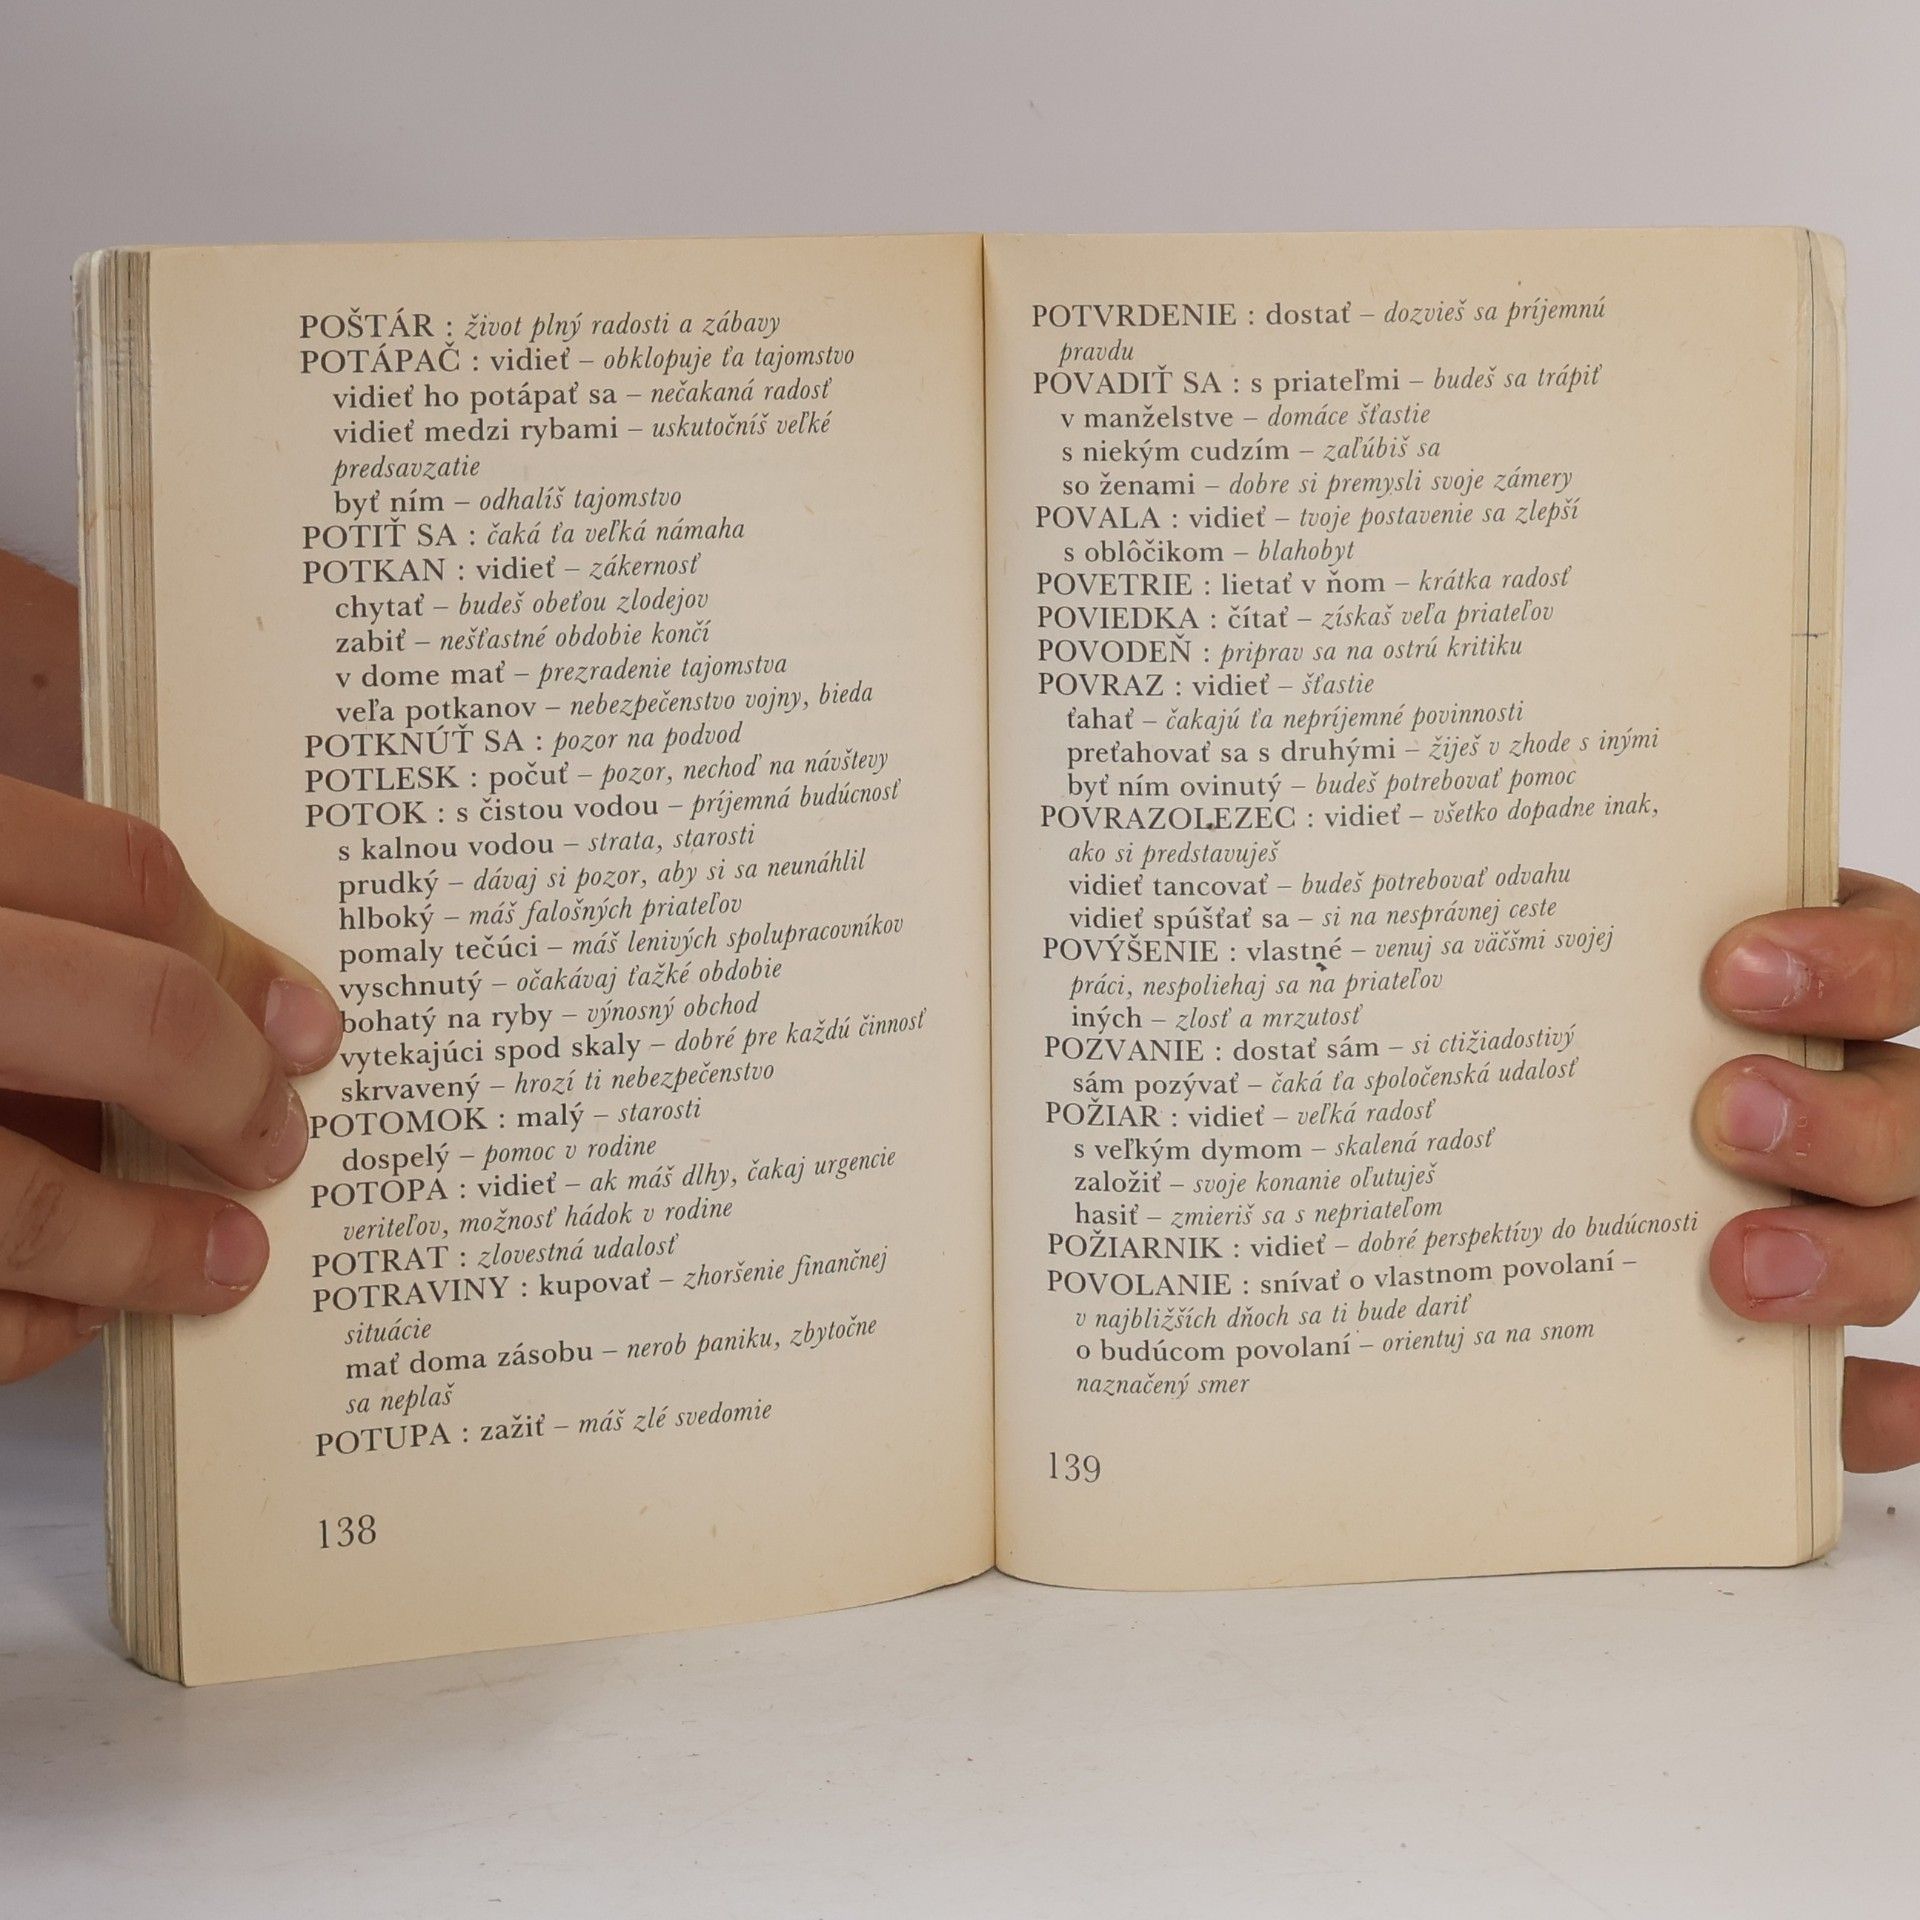 POŠTÁR : život plný radosti a zábavy
POTÁPAČ : vidieť – obklopuje ťa tajomstvo
vidieť ho potápať sa – nečakaná radosť
vidieť medzi rybami – uskutočníš veľké
predsavzatie
byť ním – odhalíš tajomstvo
POTIŤ SA : čaká ťa veľká námaha
POTKAN : vidieť – zákernosť
chytať – budeš obeťou zlodejov
zabiť – nešťastné obdobie končí
v dome mať – prezradenie tajomstva
veľa potkanov – nebezpečenstvo vojny, bieda
POTKNÚŤ SA : pozor na podvod
POTLESK : počuť – pozor, nechoď na návštevy
POTOK : s čistou vodou – príjemná budúcnosť
s kalnou vodou – strata, starosti
prudký – dávaj si pozor, aby si sa neunáhlil
hlboký – máš falošných priateľov
pomaly tečúci – máš lenivých spolupracovníkov
vyschnutý – očakávaj ťažké obdobie
bohatý na ryby – výnosný obchod
vytekajúci spod skaly – dobré pre každú činnosť
skrvavený – hrozí ti nebezpečenstvo
POTOMOK : malý – starosti
dospelý – pomoc v rodine
POTOPA : vidieť – ak máš dlhy, čakaj urgencie
veriteľov, možnosť hádok v rodine
POTRAT : zlovestná udalosť
POTRAVINY : kupovať – zhoršenie finančnej
situácie
mať doma zásobu – nerob paniku, zbytočne
sa neplaš
POTUPA : zažiť – máš zlé svedomie
138
POTVRDENIE : dostať – dozvieš sa príjemnú
pravdu
POVADIŤ SA : s priateľmi – budeš sa trápiť
v manželstve – domáce šťastie
s niekým cudzím – zaľúbiš sa
so ženami – dobre si premysli svoje zámery
POVALA : vidieť – tvoje postavenie sa zlepší
s oblôčikom – blahobyt
POVETRIE : lietať v ňom – krátka radosť
POVIEDKA : čítať – získaš veľa priateľov
POVODEŇ : priprav sa na ostrú kritiku
POVRAZ : vidieť – šťastie
ťahať – čakajú ťa nepríjemné povinnosti
preťahovať sa s druhými – žiješ v zhode s inými
byť ním ovinutý – budeš potrebovať pomoc
POVRAZOLEZEC : vidieť – všetko dopadne inak,
ako si predstavuješ
vidieť tancovať – budeš potrebovať odvahu
vidieť spúšťať sa – si na nesprávnej ceste
POVÝŠENIE : vlastné – venuj sa väčšmi svojej
práci, nespoliehaj sa na priateľov
iných – zlosť a mrzutosť
POZVANIE : dostať sám – si ctižiadostivý
sám pozývať – čaká ťa spoločenská udalosť
POŽIAR : vidieť – veľká radosť
s veľkým dymom – skalená radosť
založiť – svoje konanie oľutuješ
hasiť – zmieriš sa s nepriateľom
POŽIARNIK : vidieť – dobré perspektívy do budúcnosti
POVOLANIE : snívať o vlastnom povolaní –
v najbližších dňoch sa ti bude dariť
o budúcom povolaní – orientuj sa na snom
naznačený smer
139